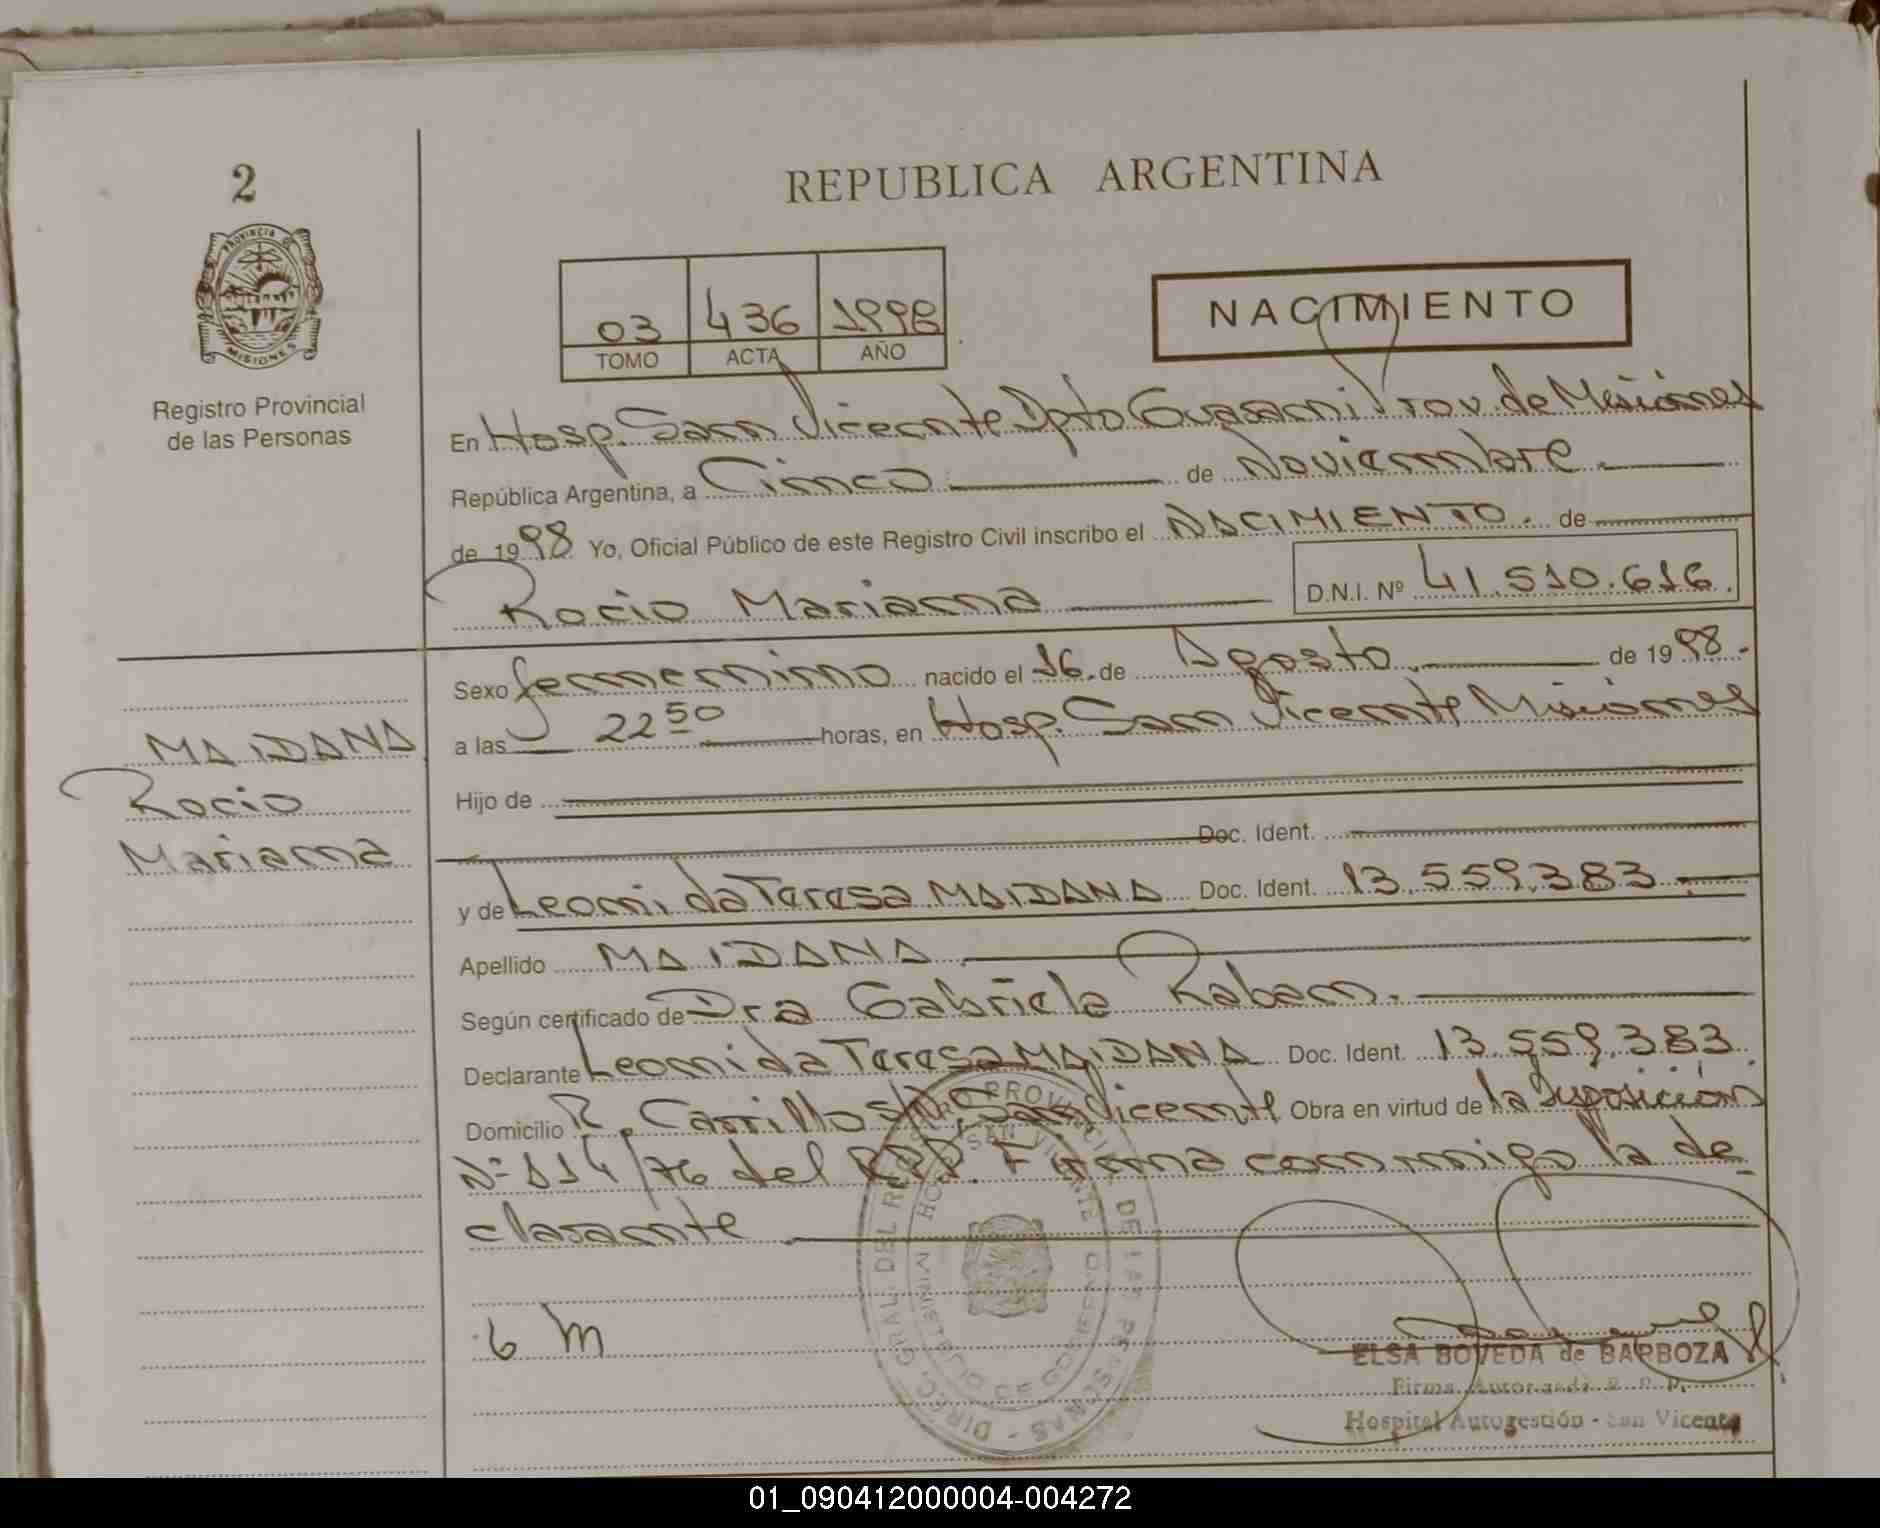 2
REPUBLICA ARGENTINA
PROVINCIA DE
MISIONES
Registro Provincial
de las Personas
03 436 1998
TOMO ACTA AÑO
NACIMIENTO
En Hosp. San Vicente Dpto Guarani Prov. de Misiones
República Argentina, a Cinco de Noviembre
de 1998 Yo, Oficial Público de este Registro Civil inscribo el NACIMIENTO. de
Rocio Mariana D.N.I. Nº 41.510.616.
Sexo femenino nacido el 16. de Agosto. de 1998.
a las 22 50 horas, en Hosp. San Vicente Misiones
Hijo de
Doc. Ident.
y de Leonida Teresa MAIDANA Doc. Ident. 13.559.383.
Apellido MAIDANA
Según certificado de Dra Gabriela Raban.
Declarante Leonida Teresa MAIDANA Doc. Ident. 13.559.383
Domicilio R. Carrillo S/Nº San Vicente Obra en virtud de la Disposición
Nº 114/76 del R.P.P. Firma conmigo la de-
clarante
MAIDANA
Rocio
Mariana
DIREC. GRAL. DEL REGISTRO PROVINCIAL DE LAS PERSONAS
SAN VICENTE
MINISTERIO DE GOBIERNO
L M
ELSA BOVEDA de BARBOZA
Firma Autorizada R. P. P.
Hospital Autogestión - San Vicente
01_090412000004-004272